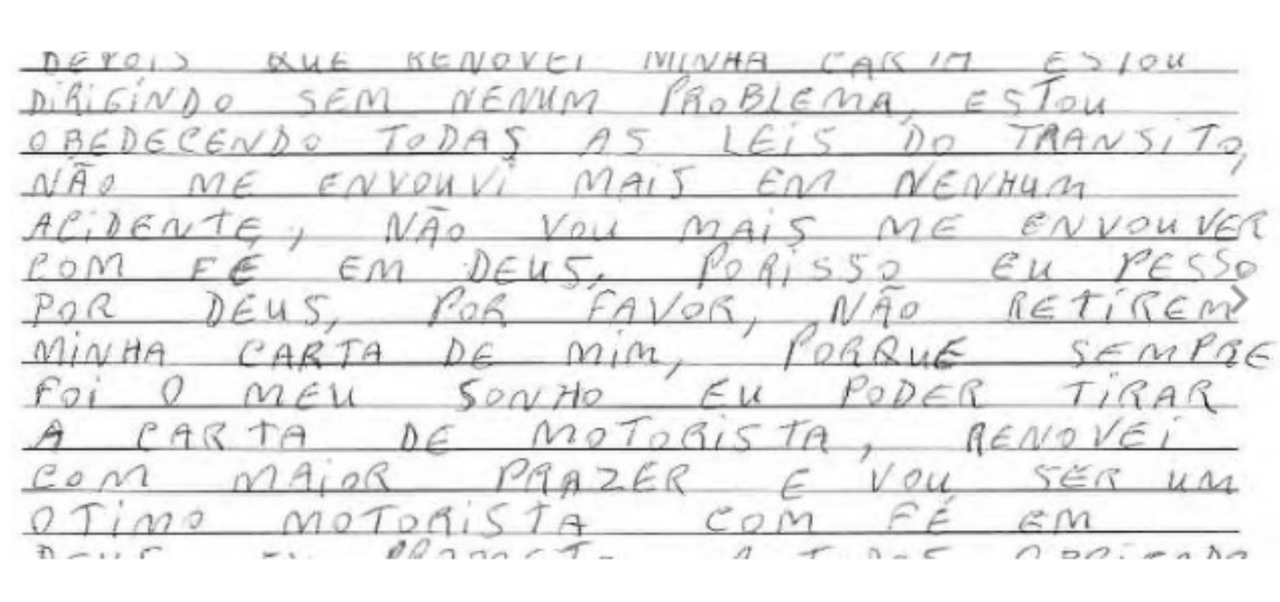 DEPOIS QUE RENOVEI MINHA CARTA ESTOU
DIRIGINDO SEM NENUM PROBLEMA, ESTOU
OBEDECENDO TODAS AS LEIS DO TRANSITO,
NÃO ME ENVOUVI MAIS EM NENHUM
ACIDENTE, NÃO VOU MAIS ME ENVOUVER
COM FÉ EM DEUS, PORISSO EU PESSO
POR DEUS, POR FAVOR, NÃO RETIREM
MINHA CARTA DE MIM, PORQUE SEMPRE
FOI O MEU SONHO EU PODER TIRAR
A CARTA DE MOTORISTA, RENOVEI
COM MAIOR PRAZER E VOU SER UM
OTIMO MOTORISTA COM FÉ EM
DEUS EU PROMETO A TODOS OBRIGADO